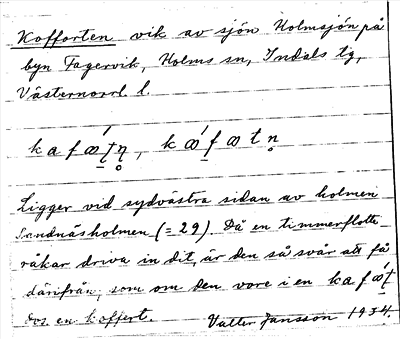 Kofforten vik av sjön Holmsjön på
byn Fagervik, Holms sn, Indals tg,
Västernorrl. l.
Ligger vid sydvästra sidan av holmen
Sandnäsholmen (=29). Då en timmerflotte
råkar driva in dit, är den så svår att få
därifrån, som om den vore i en
dvs. en koffert. Valter Jansson 1934.